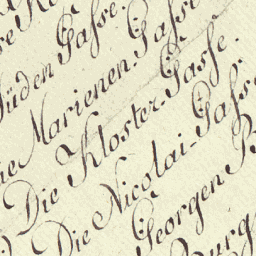 Jüden Gasse.
Marienen. Gasse
Die Kloster-Gasse.
Die Nicolai-Gasse
Georgen
Burg